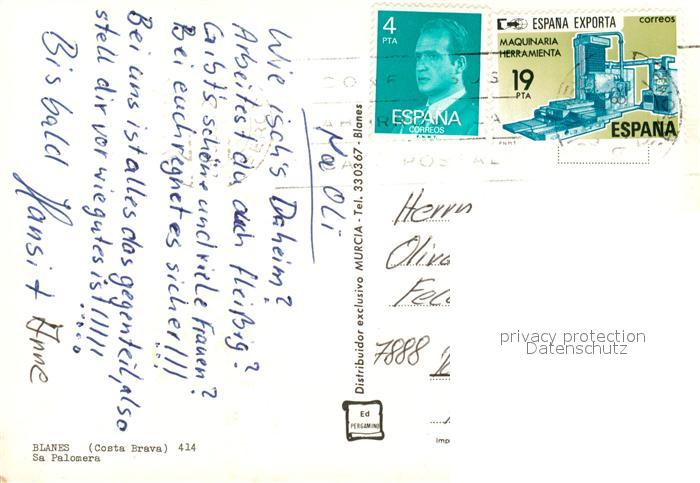 Na Oli
Wie isch's Daheim?
Arbeitest du auch fleißig?
Gibt's schöne und viele Frauen?
Bei euch regnet es sicher!!!
Bei uns ist alles das gegenteil, also
stell dir vor wie gut es ist!!!!!
Bis bald Hansi + Anne
BLANES (Costa Brava) 414
Sa Palomera
Distribuidor exclusivo MURCIA - Tel. 330367 - Blanes
Ed
PERGAMINO
4
PTA
ESPAÑA
CORREOS
F.N.M.T.
ESPAÑA EXPORTA
correos
MAQUINARIA
HERRAMIENTA
19
PTA
ESPAÑA
F.N.M.T.
POSTAL
Herrn
Oliv
Fec
7888
Imp
privacy protection
Datenschutz